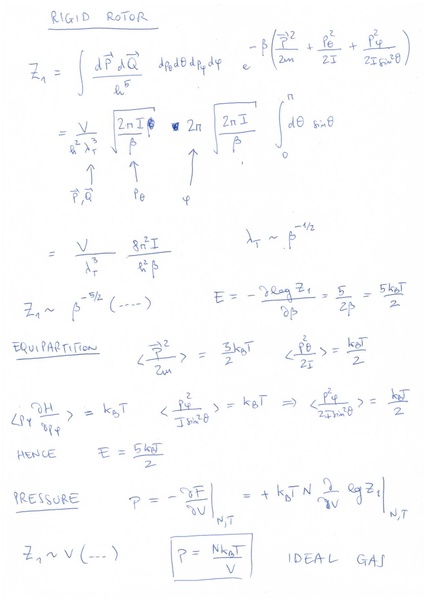 RIGID ROTOR
Z₁ = ∫ dP⃗ dQ⃗ / h⁵ dp_θ dθ dp_φ dφ e^{-β(P⃗²/2m + p_θ²/2I + p_φ²/2I sin²θ)}
= V/(h² λ_T³) √(2πI/β) · 2π √(2πI/β) ∫₀^π dθ sinθ
P⃗,Q⃗ p_θ φ
= V/λ_T³ 8π²I/(h²β) λ_T ~ β^{-1/2}
Z₁ ~ β^{-5/2} (....) E = -∂log Z₁/∂β = 5/2β = 5k_BT/2
EQUIPARTITION ⟨P⃗²/2m⟩ = 3k_BT/2 ⟨p_θ²/2I⟩ = k_BT/2
⟨p_φ ∂H/∂p_φ⟩ = k_BT ⟨p_φ²/I sin²θ⟩ = k_BT ⇒ ⟨p_φ²/2I sin²θ⟩ = k_BT/2
HENCE E = 5k_BT/2
PRESSURE P = -∂F/∂V|_{N,T} = + k_BT N ∂/∂V log Z₁|_{N,T}
Z₁ ~ V (---) P = Nk_BT/V IDEAL GAS